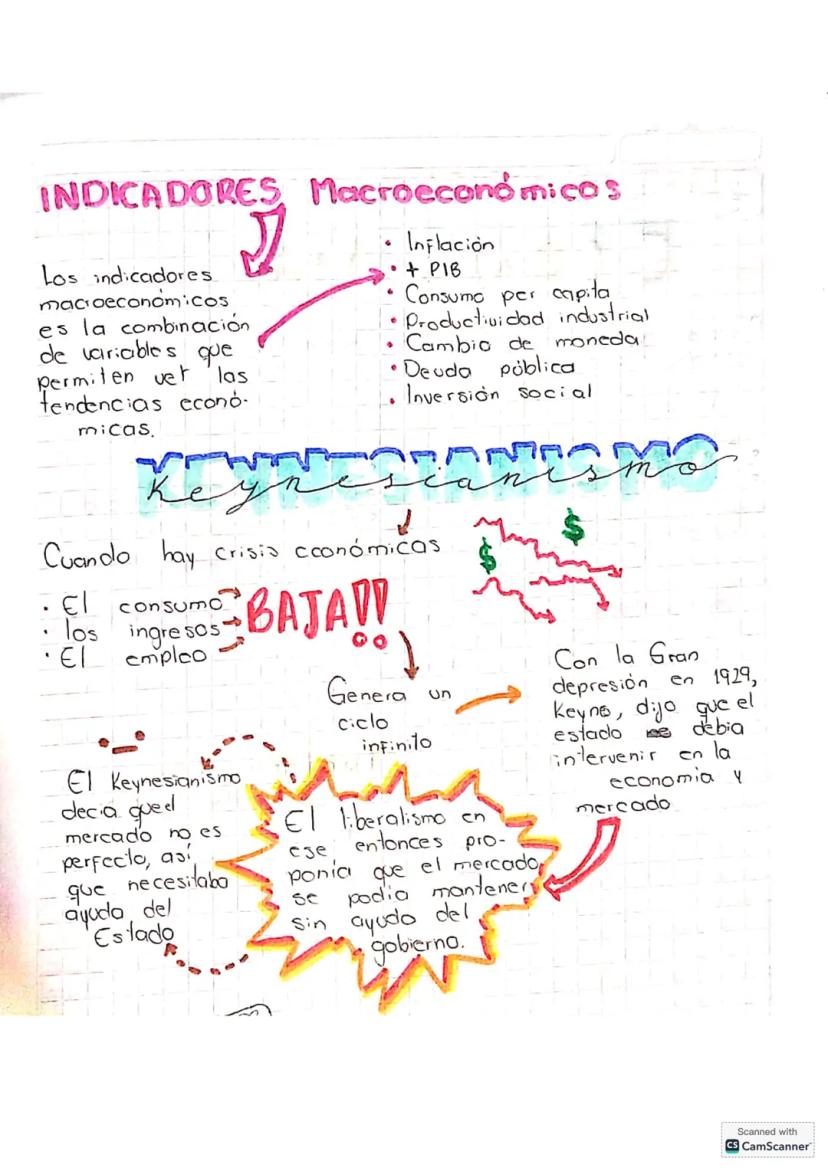 INDICADORES Macroeconómicos
Los indicadores
macroeconómicos
es la combinación
de variables que
permiten ver las
tendencias econó-
micas.
• Inflación
• + PIB
• Consumo per capita
• Productividad industrial
• Cambio de moneda
• Deuda pública
• Inversión social
KEYNESIANISMO
keynesianismo
Cuando hay crisis económicas
$ $
• El consumo
• los ingresos
• El empleo
BAJA!!
Genera un
ciclo
infinito
Con la Gran
depresión en 1929,
Keyns, dijo que el
estado debia
intervenir en la
economia y
mercado
El liberalismo en
ese entonces pro-
ponia que el mercado
se podia mantener
sin ayuda del
gobierno.
El Keynesianismo
decia que el
mercado no es
perfecto, así
que necesitaba
ayuda del
Estado
Scanned with
CS CamScanner